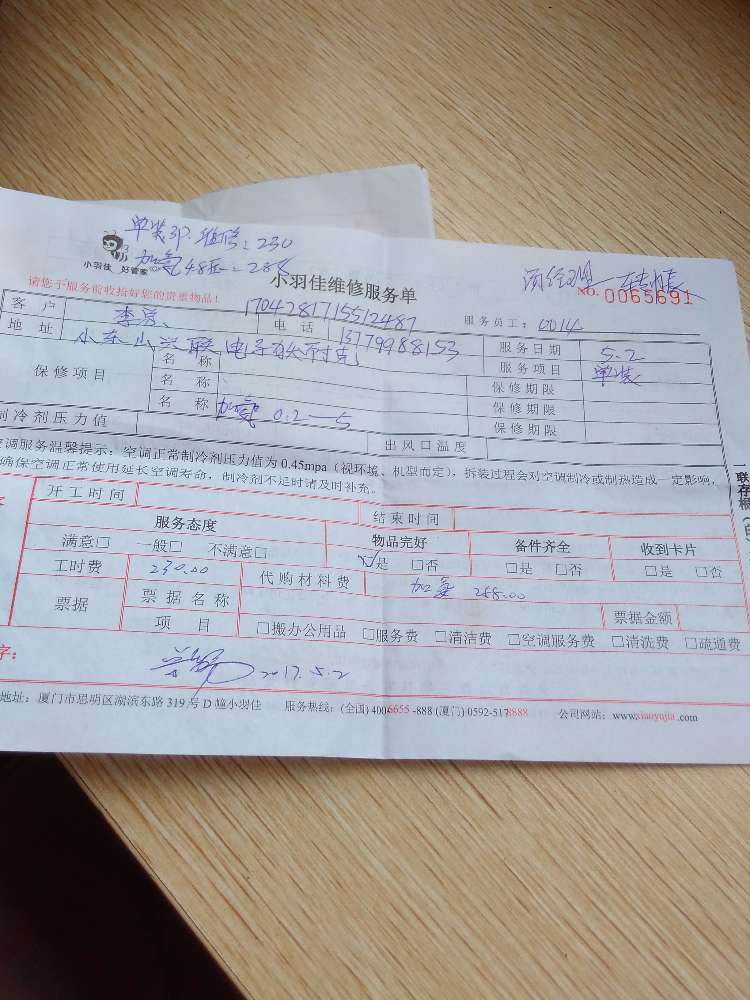 单装3P.维修:230
加氟48压=288
小羽佳 好管家
小羽佳维修服务单
NO. 0065691
请您于服务前收拾好您的贵重物品!
17042817155 12487
服务员工: 0014
客户 李 电话 13779988153 服务日期 5.2
地址 服务项目 单装
保修项目 名称 保修期限
名称 保修期限
名称 加氟 0.2—5 保修期限
制冷剂压力值 出风口温度
空调服务温馨提示:空调正常制冷剂压力值为0.45mpa(视环境、机型而定),拆装过程会对空调制冷或制热造成一定影响,
确保空调正常使用延长空调寿命,制冷剂不足时请及时补充。
开工时间 结束时间
服务态度 物品完好 备件齐全 收到卡片
满意□ 一般□ 不满意□ ☑是 □否 □是 □否 □是 □否
工时费 230.00 代购材料费 加氟 288.00
票据 票据名称 票据金额
项目 □搬办公用品 □服务费 □清洁费 □空调服务费 □清洗费 □疏通费
字:
2017.5.2
地址:厦门市思明区湖滨东路319号D幢小羽佳 服务热线:(全国)4006655-888(厦门)0592-5178888 公司网站:www.xiaoyujia.com
一联存根(白